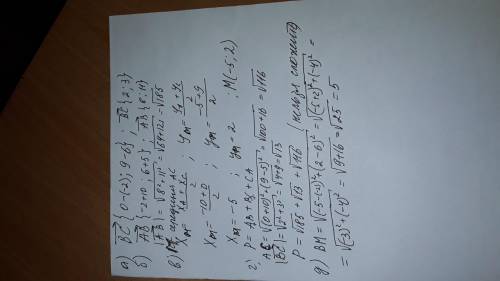 а) BC {0-(-2); 9-6} ; BC {2; 3}
б) AB {-2+10 ; 6+5} ; AB {8; 11}
|AB| = √8²+11² = √64+121 = √185
в) M середина AC
Xm = xA + xC / 2 ; Ym = yA + yC / 2
Xm = -10+0 / 2 ; Ym = -5+9 / 2
Xm = -5 ; Ym = 2 ; M(-5; 2)
г) P = AB + BC + CA
AC = √(0+10)²+(9-5)² = √100+16 = √116
|BC| = √2²+3² = √4+9 = √13
P = √185 + √13 + √116 (нельзя сложить)
д) BM = √(-5-(-2))²+(2-6)² = √(-5+2)²+(-4)² =
= √(-3)²+(-4)² = √9+16 = √25 = 5